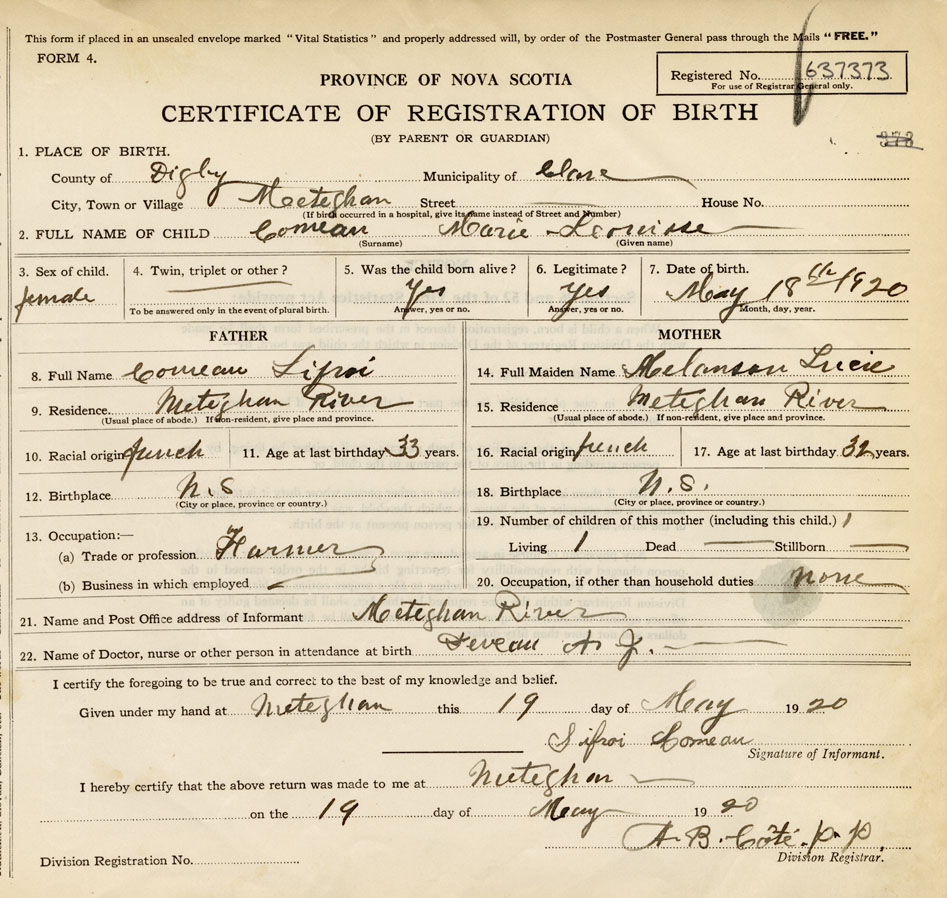 This form if placed in an unsealed envelope marked "Vital Statistics" and properly addressed will, by order of the Postmaster General pass through the Mails "FREE."
FORM 4.
PROVINCE OF NOVA SCOTIA
Registered No. 637373
For use of Registrar General only.
CERTIFICATE OF REGISTRATION OF BIRTH
(BY PARENT OR GUARDIAN)
378
1. PLACE OF BIRTH.
County of Digby Municipality of Clare
City, Town or Village Meteghan Street House No.
(If birth occurred in a hospital, give its name instead of Street and Number)
2. FULL NAME OF CHILD Comeau Marie Leouisse
(Surname) (Given name)
3. Sex of child. 4. Twin, triplet or other? 5. Was the child born alive? 6. Legitimate? 7. Date of birth.
female Yes Yes May 18th 1920
To be answered only in the event of plural birth. Answer, yes or no. Answer, yes or no. Month, day, year.
FATHER
8. Full Name Comeau Sifroi
9. Residence. Meteghan River
(Usual place of abode.) If non-resident, give place and province.
10. Racial origin french 11. Age at last birthday 33 years.
12. Birthplace N.S
(City or place, province or country.)
13. Occupation:—
(a) Trade or profession Farmer
(b) Business in which employed
MOTHER
14. Full Maiden Name Melanson Lucie
15. Residence Meteghan River
(Usual place of abode.) If non-resident, give place and province.
16. Racial origin french 17. Age at last birthday 32 years.
18. Birthplace N.S.
(City or place, province or country.)
19. Number of children of this mother (including this child.) 1
Living 1 Dead Stillborn
20. Occupation, if other than household duties none
21. Name and Post Office address of Informant Meteghan River
22. Name of Doctor, nurse or other person in attendance at birth Deveau A. J.
I certify the foregoing to be true and correct to the best of my knowledge and belief.
Given under my hand at Meteghan this 19 day of May 19 20
Sifroi Comeau
Signature of Informant.
I hereby certify that the above return was made to me at Meteghan
on the 19 day of May 19 20
A. B. Côté. p. p.
Division Registrar.
Division Registration No.